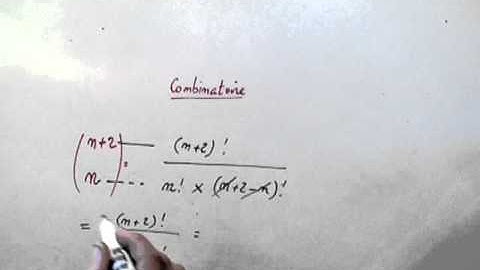 Combinatorie
(n+2) (n+2)!
n n! × (n+2-n)!
= (n+2)! =
!